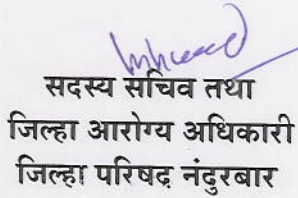 सदस्य सचिव तथा
जिल्हा आरोग्य अधिकारी
जिल्हा परिषद नंदुरबार